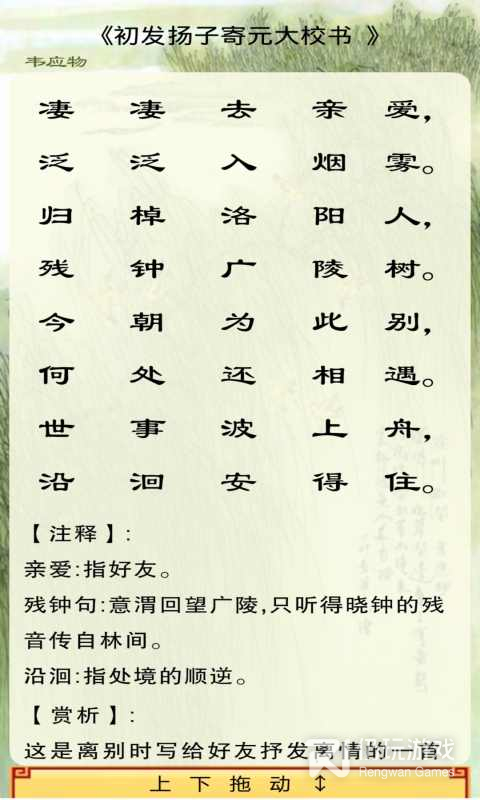 《初发扬子寄元大校书 》
韦应物
凄凄去亲爱,
泛泛入烟雾。
归棹洛阳人,
残钟广陵树。
今朝为此别,
何处还相遇。
世事波上舟,
沿洄安得住。
【注释】:
亲爱:指好友。
残钟句:意渭回望广陵,只听得晓钟的残
音传自林间。
沿洄:指处境的顺逆。
【赏析】:
这是离别时写给好友抒发离情的一首
上下拖动 ↕
玩游戏
Rengwan Games